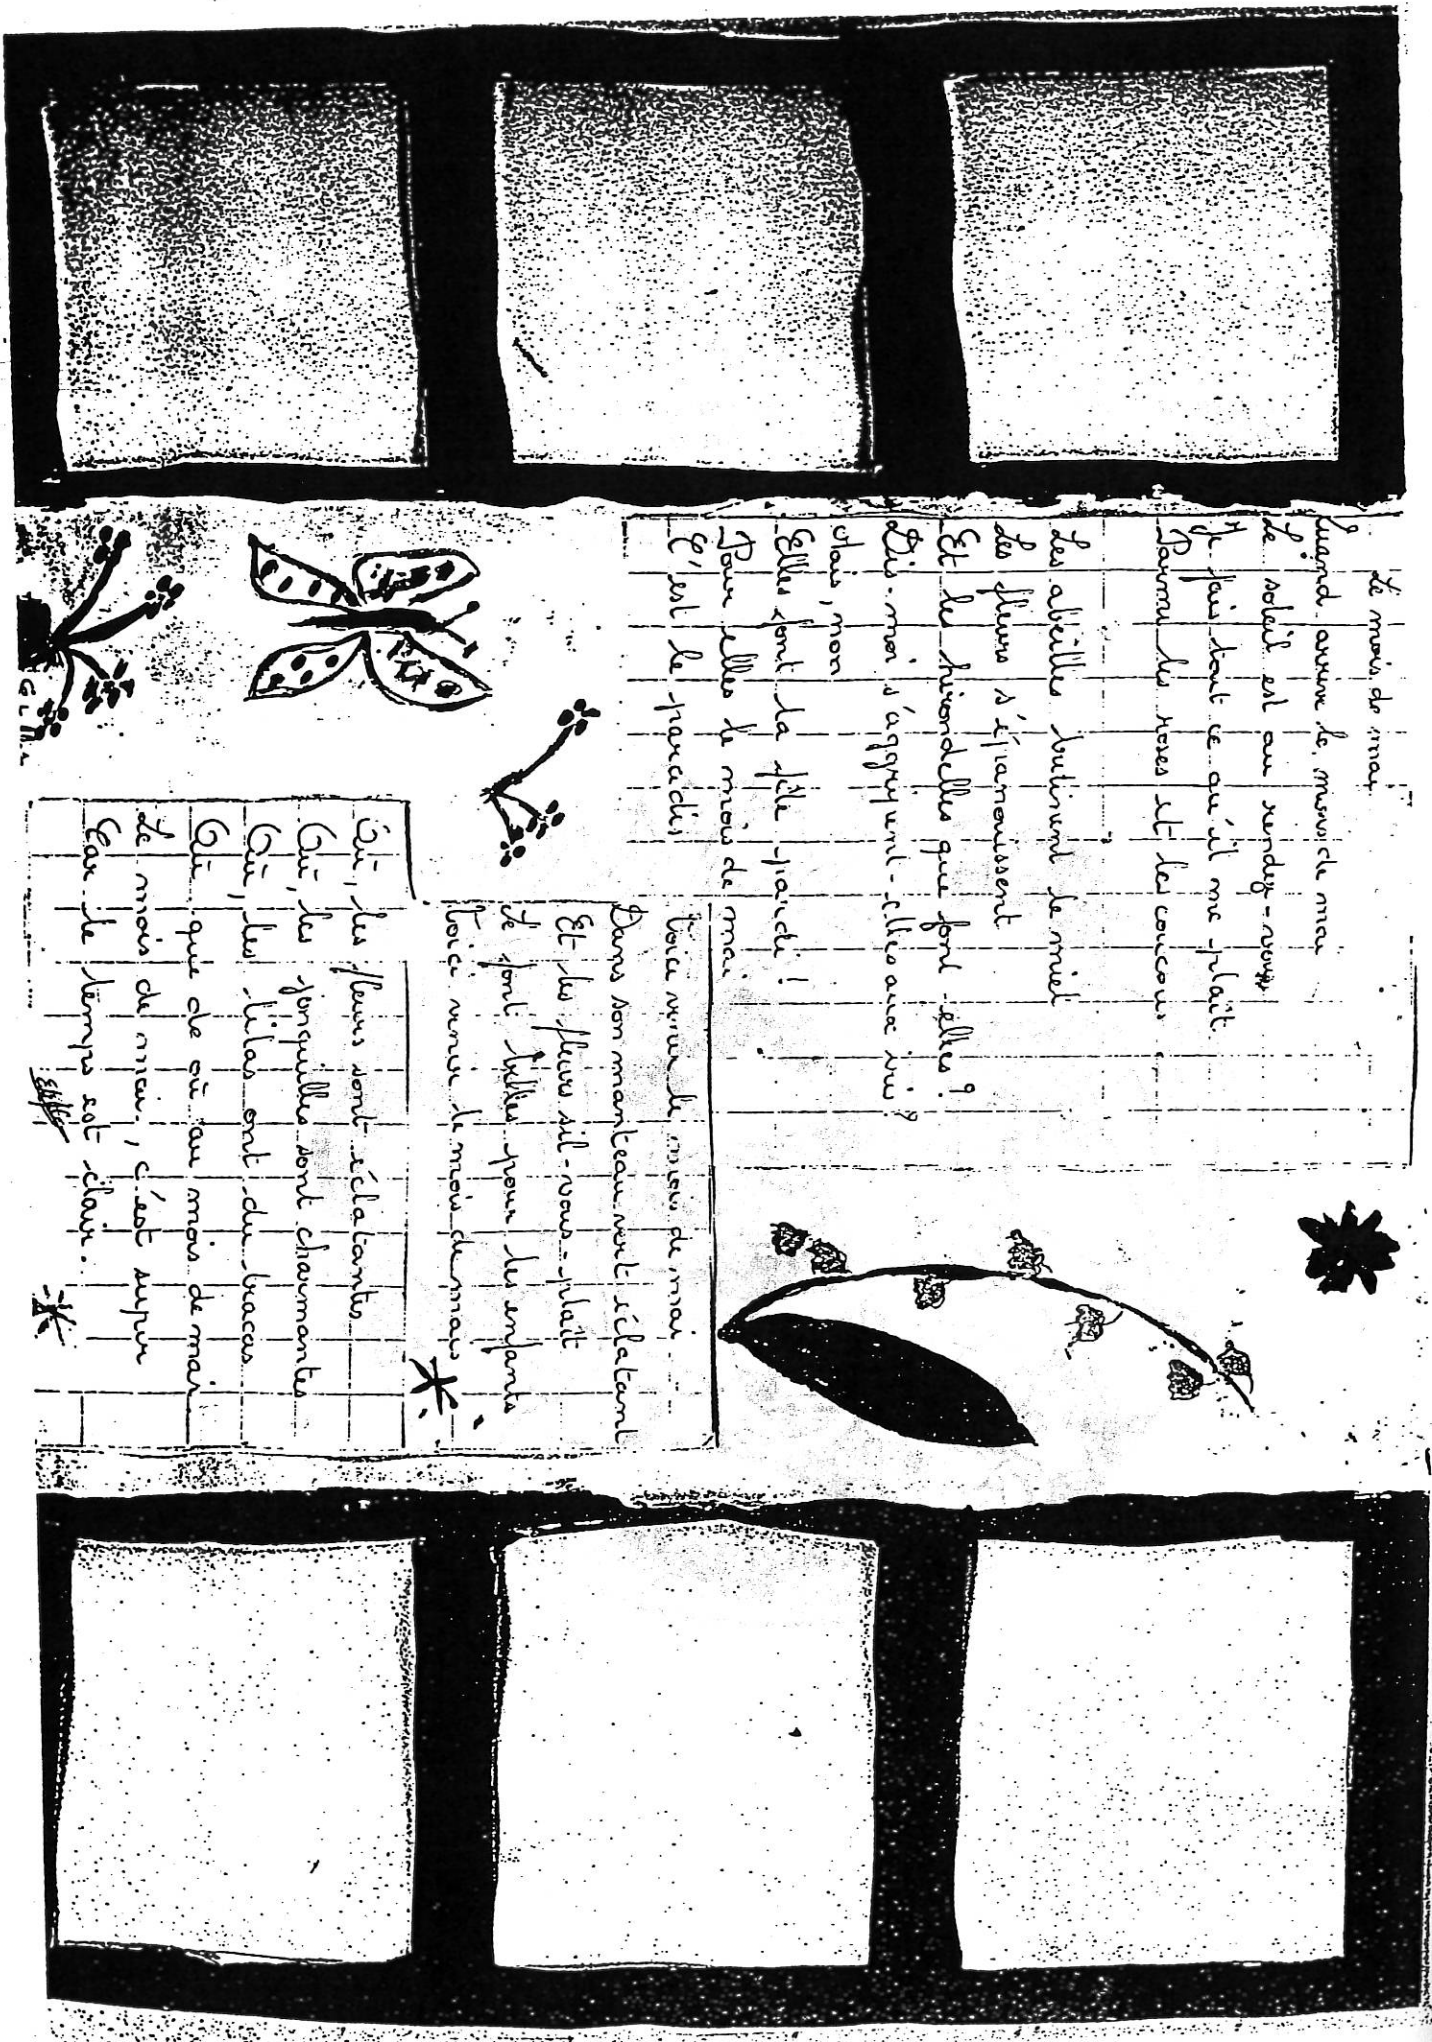 Le mois de mai
Quand arrive le mois de mai
Le soleil est au rendez-vous
Je fais tout ce qu'il me plaît.
Parmi les roses et les coucous
Les abeilles butinent le miel
Les fleurs s'épanouissent
Et les hirondelles que font-elles?
Dis-moi s'aggripent-elles aux
Mais, non
Elles font la fête pardi!
Pour elles le mois de mai
C'est le paradis
Voici venir le mois de mai
Dans son manteau vert éclatant
Et les fleurs sil-vous-plaît
Se font belles pour les enfants
Voici venir le mois de mais
Où, les fleurs sont éclatantes
Où, les jonquilles sont charmantes
Où, les lilas ont du tracas
Où que de où au mois de mai
Le mois de mai, c'est super
Car le temps est clair.